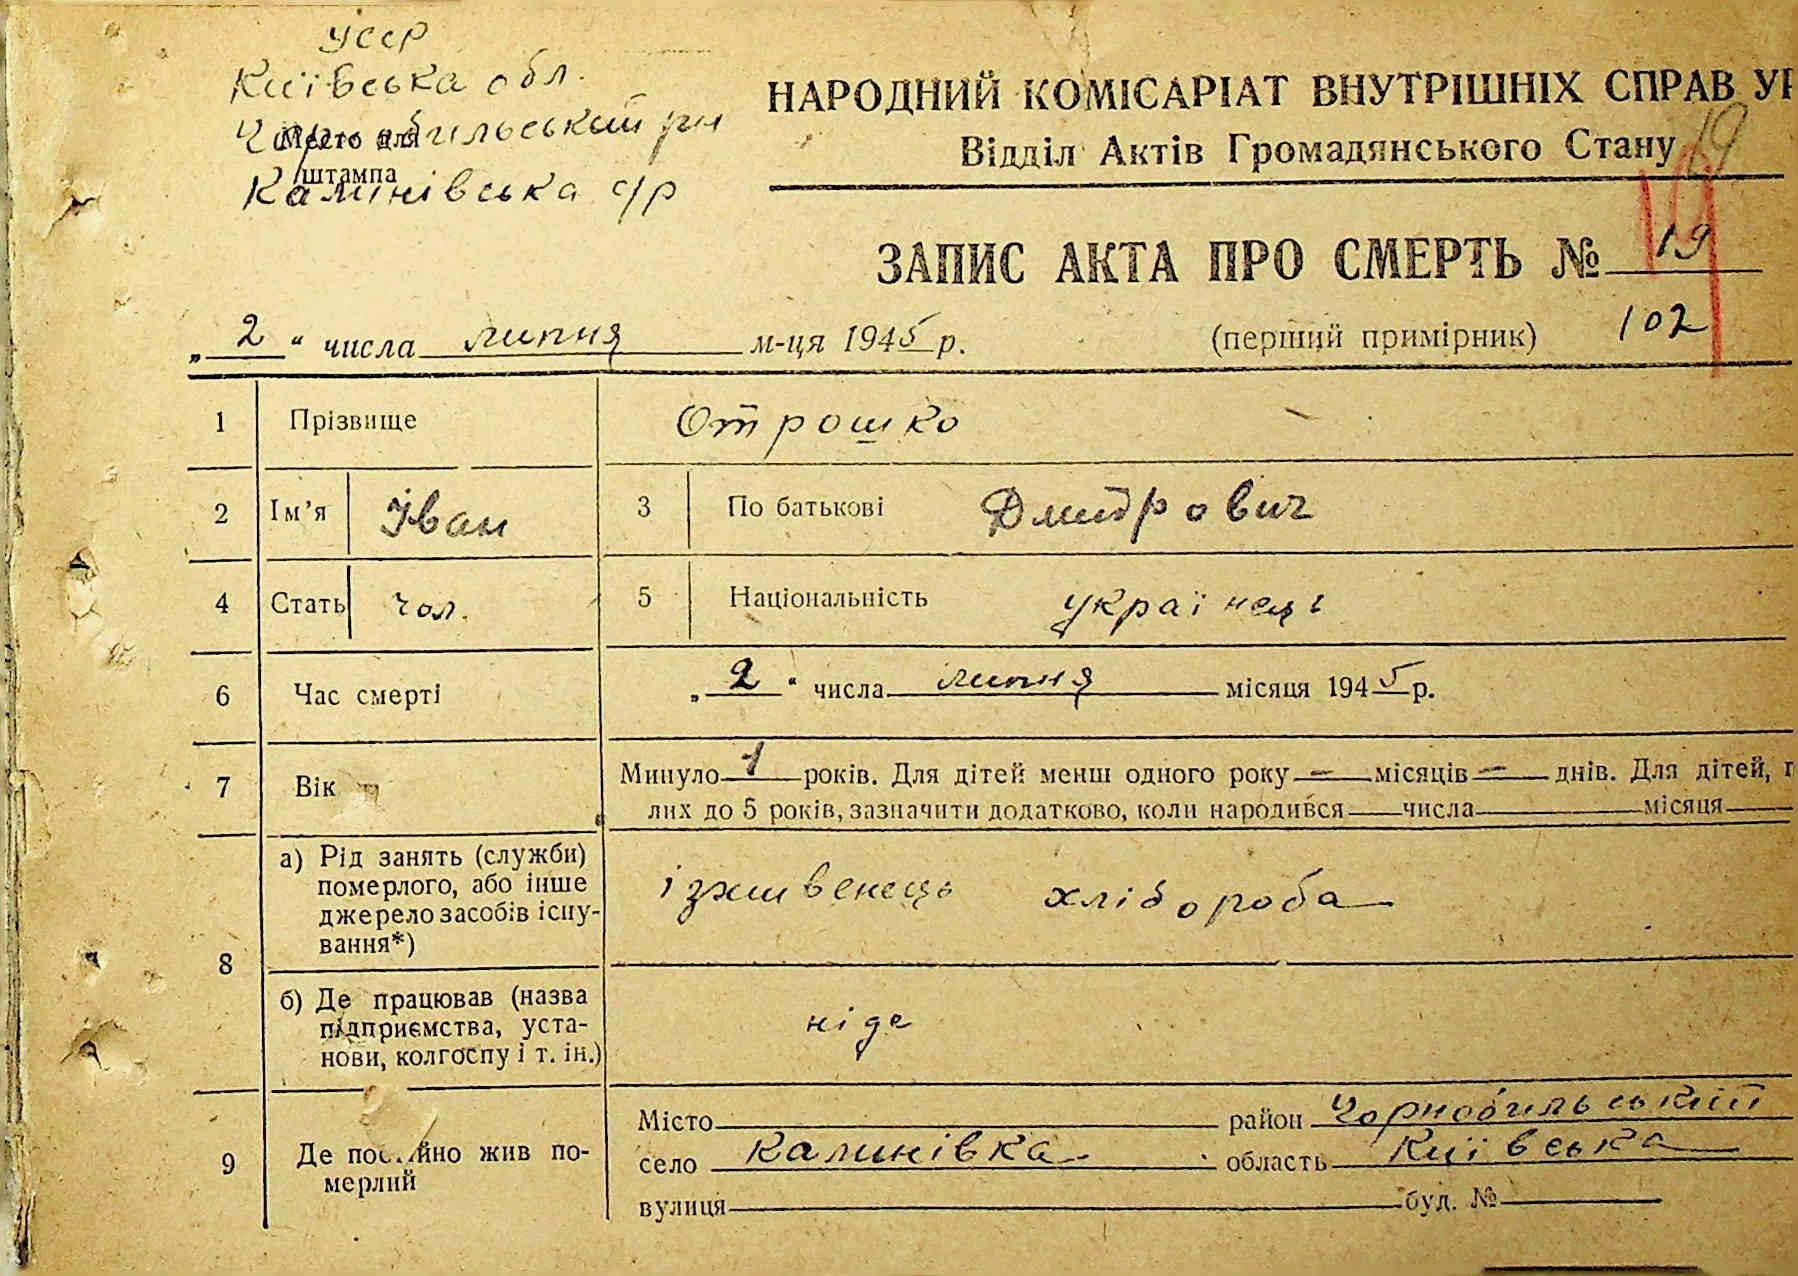 УССР
Київська обл.
Чорнобильський рн
Место для
штампа
Калинівська с/р
НАРОДНИЙ КОМІСАРІАТ ВНУТРІШНІХ СПРАВ УР
Відділ Актів Громадянського Стану
19
19
ЗАПИС АКТА ПРО СМЕРТЬ № 19
„2“ числа липня м-ця 1945 р. (перший примірник) 102
1 Прізвище Отрошко
2 Ім’я Іван 3 По батькові Дмитрович
4 Стать чол. 5 Національність українець
6 Час смерті „2“ числа липня місяця 1945 р.
7 Вік Минуло 1 років. Для дітей менш одного року — місяців — днів. Для дітей,
лих до 5 років, зазначити додатково, коли народився числа місяця
8 а) Рід занять (служби)
померлого, або інше
джерело засобів існу-
вання*) ізживенець хлібороба
б) Де працював (назва
підприємства, уста-
нови, колгоспу і т. ін.) ніде
9 Де постійно жив по-
мерлий
Місто район Чорнобильський
село Калинівка область Київська
вулиця буд. №